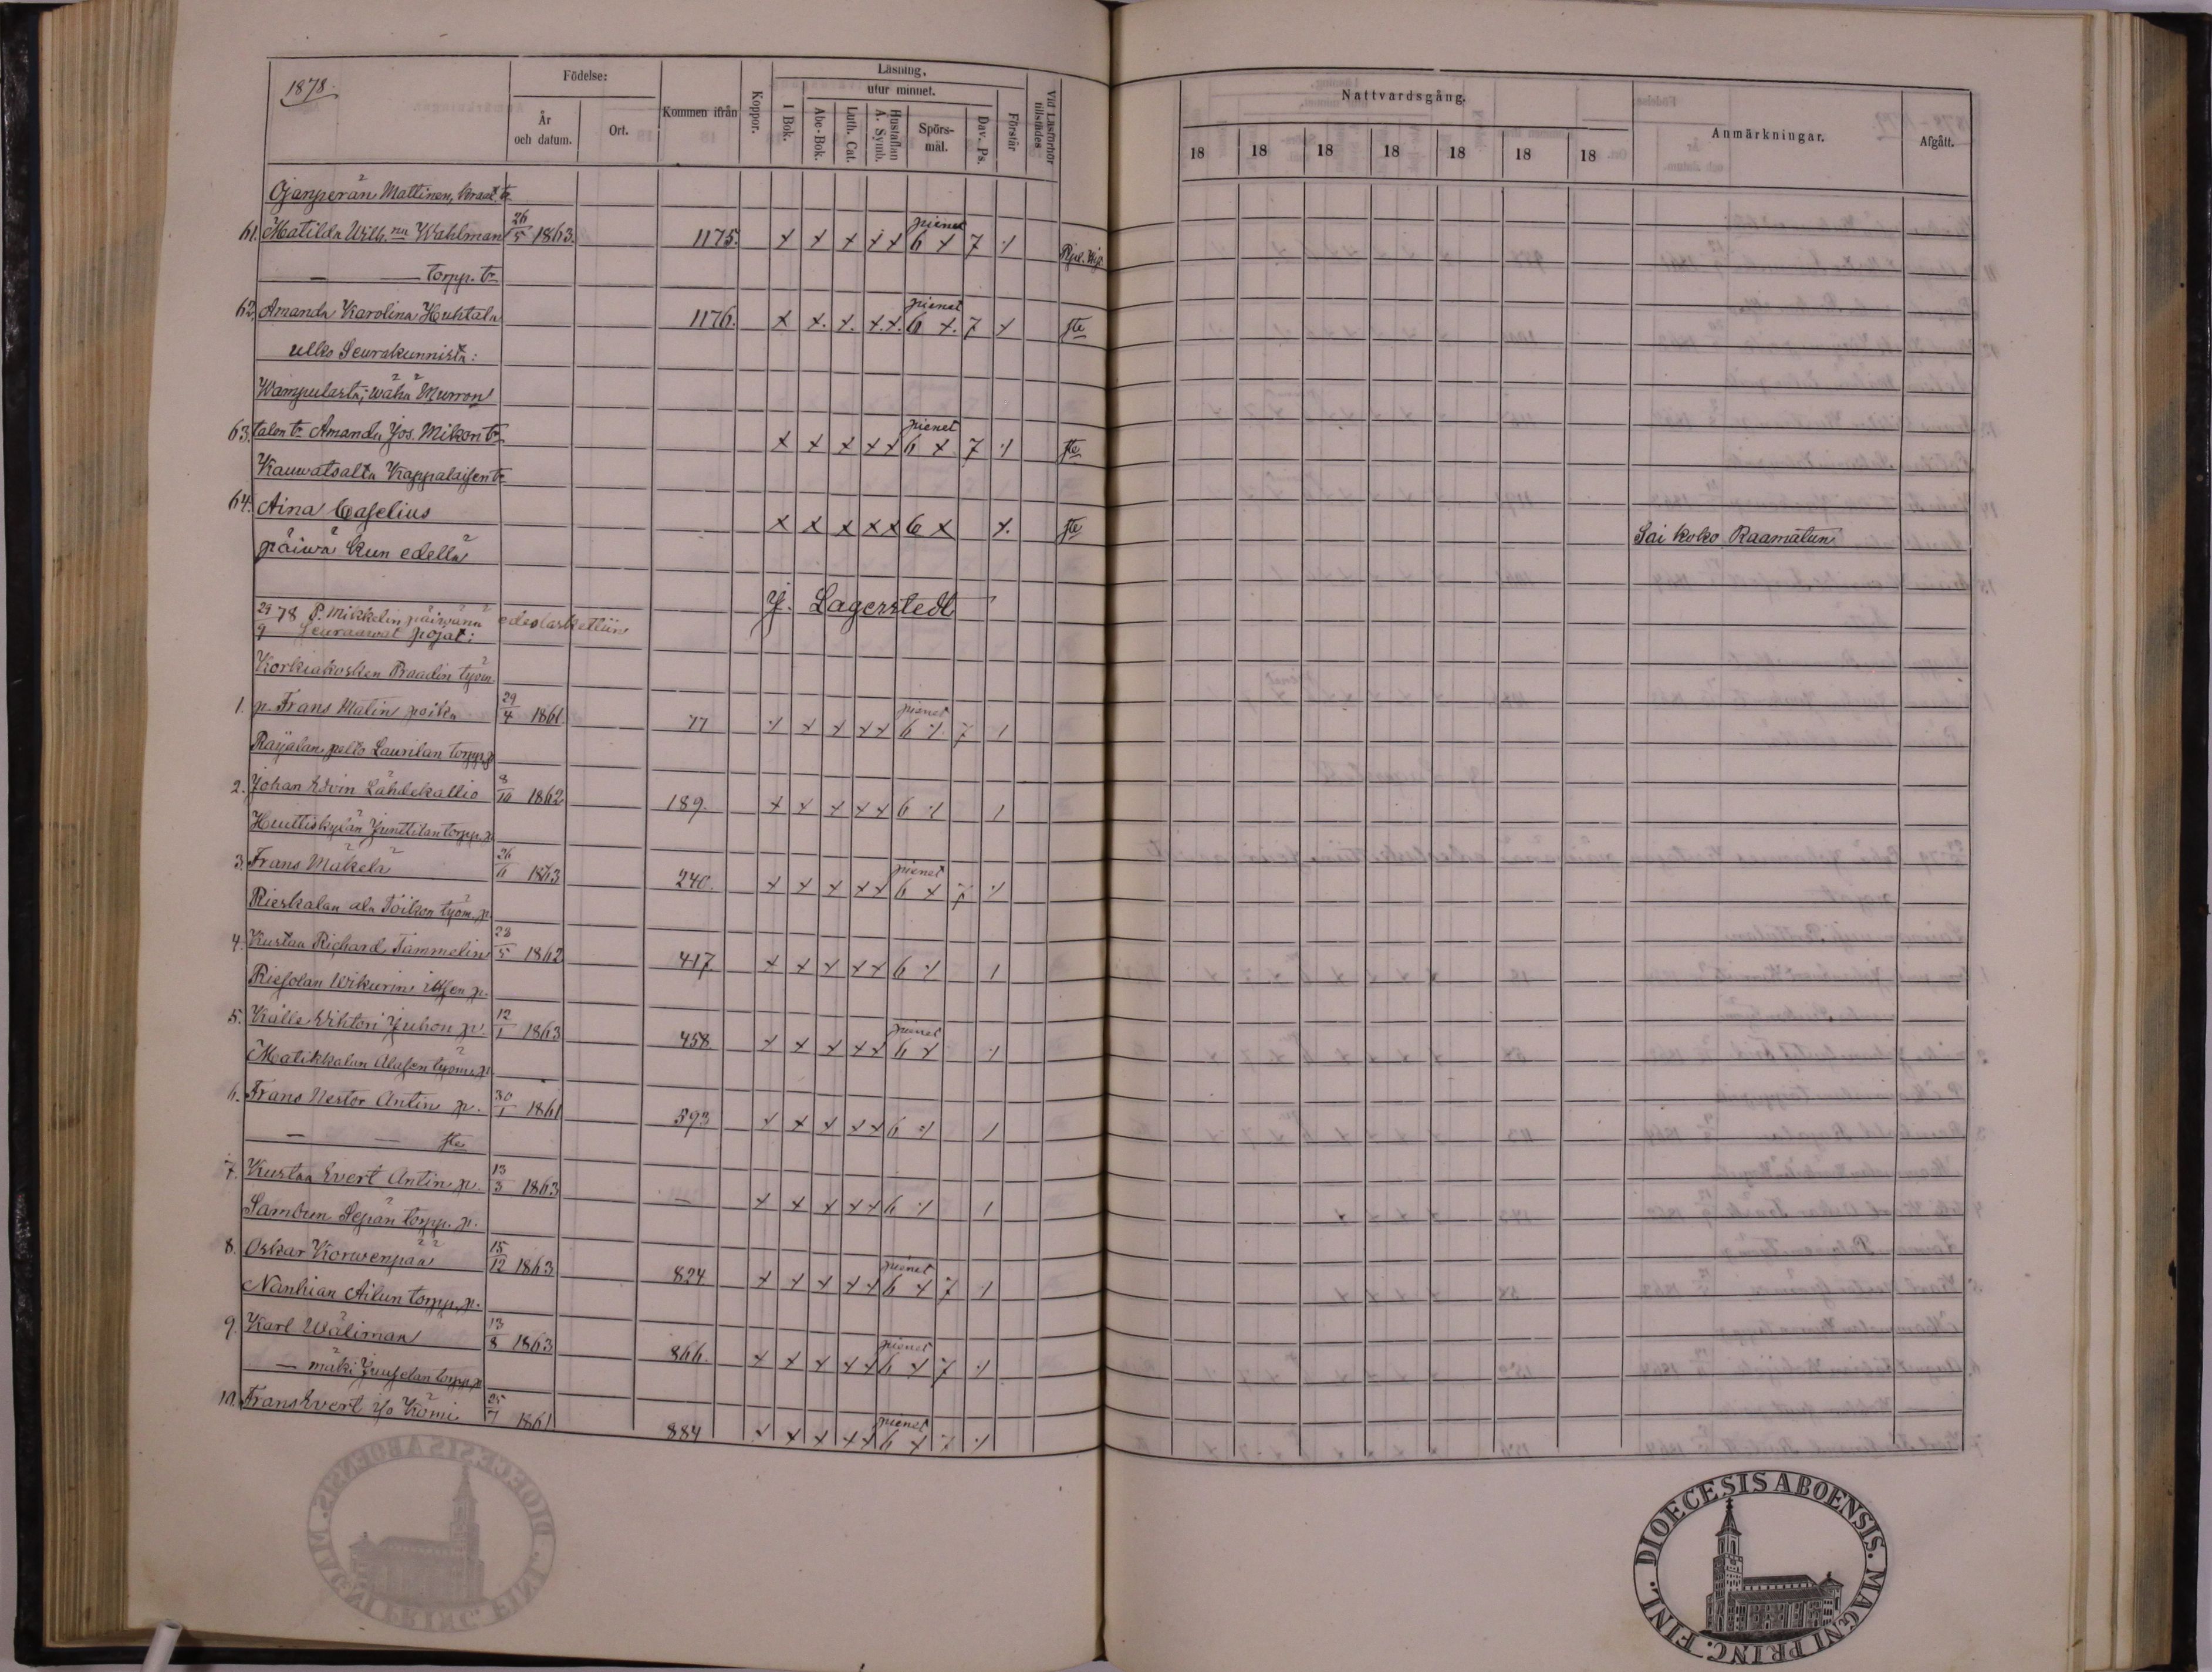 1878.
Födelse:
År och datum.
Ort.
Kommen ifrån
Koppor.
Läsning.
utur minnet.
I Bok.
Abc-Bok.
Luth. Cat.
Hustaflan A. Symb.
Spörsmål.
Dav. Ps.
Förstår
Vid Läsförhör tillstädes
Nattvardsgång.
18 18 18 18 18 18 18
Anmärkningar.
Afgått.
Ojanperän Mattinen,
61. Matilda Wilh. Wahlman 26/5 1863. 1175. x x x x x pienet 6 x 7 ·/.
— torpp. tr
62. Amanda Karolina Huhtala 1176. x x. x. x. x. pienet 6 x. 7 x
ulko Seurakunnista:
Wampulasta; wähä Murron
63. talon tr Amanda Jos. Mikon tr x x x x x pienet 6 x 7 ·/.
Kauwatsalta Kappalaisen tr
64. Aina Caselius x x x x x 6 x x. Sai koko Raamatun
päiwä kun edellä
J. Lagerstedt
29/9 78 P. Mikkelin päiwänä edeslaskettiin
Seuraawat pojat:
Korkiakosken Praadin työm.
1. p. Frans Malin poika 29/4 1861. 77 x x x x x pienet 6 ·/. 7 1
Rayalan pelto Laurilan torpp. p
2. Johan Edvin Lähdekallio 8/10 1862 189. x x x x x 6 ·/. 1
Huittiskylän Junttilan torpp. p
3. Frans Mäkelä 26/6 1863 240. x x x x x pienet 6 x 7 ·/.
Rieskalan ala Töikon työm. p.
4. Kustaa Richard Tammelin 23/5 1862 417 x x x x x 6 ·/. 1
Riesolan Wikurin itsen p.
5. Kalle Wihtori Juhon p. 12/1 1863 458 x x x x x pienet 6 x ·/.
Matikkalan Alasen työm. p
6. Frans Nestor Antin p. 30/1 1861 593 x x x x x 6 ·/. 1
— —
7. Kustaa Evert Antin p. 13/3 1863 — x x x x x 6 ·/. 1
Sambun Sepän torpp. p.
8. Oskar Korwenpää 15/12 1863 824 x x x x x pienet 6 x 7 ·/.
Nanhian Ailun torpp. p.
9. Karl Wäliman 13/8 1863 866. x x x x x pienet 6 x 7 ·/.
— mäki Juuselan torpp. p
10. Frans Evert Kömi 25/7 1861 884 x x x x x pienet 6 x 7 ·/.
DIOECESIS ABOENSIS. MAGNI PRINC. FINL.